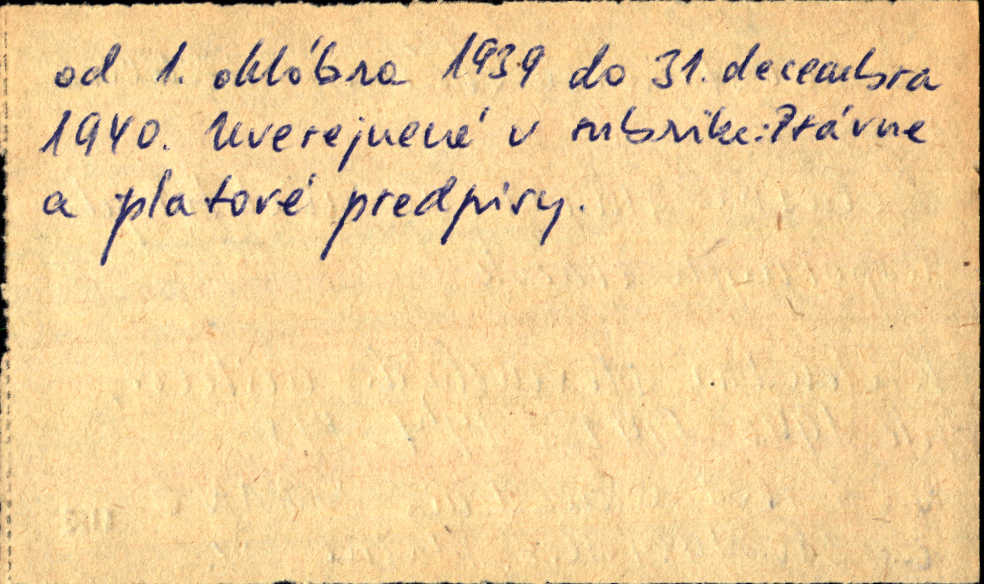 od 1. októbra 1939 do 31. decembra
1940. Uverejnené v rubrike: Právne
a platové predpisy.